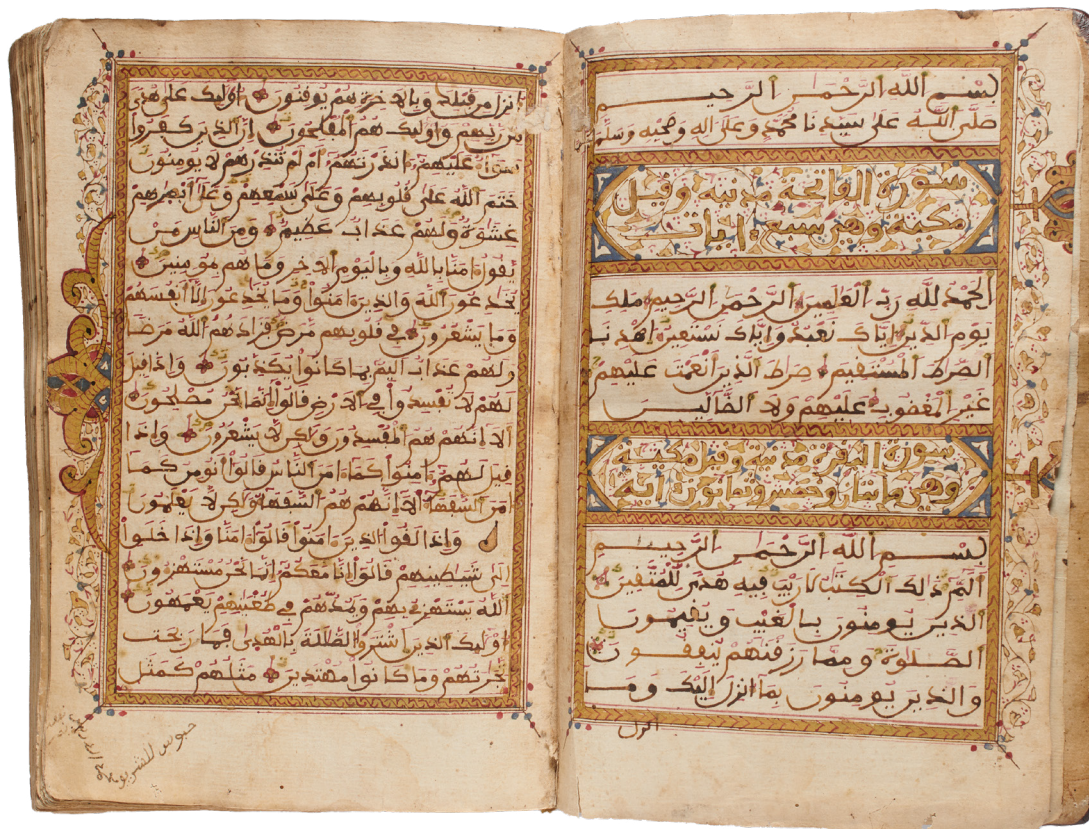 بسم الله الرحمن الرحيم
صلى الله على سيدنا محمد وعلى اله وصحبه وسلم
سورة الفاتحة مدنية وقيل
مكية وهي سبع ايات
الحمد لله رب العلمين الرحمن الرحيم ملك
يوم الدين اياك نعبد واياك نستعين اهدنا
الصرط المستقيم صرط الذين انعمت عليهم
غير المغضوب عليهم ولا الضالين
سورة البقرة مدنية وقيل مكية
وهي مايتان وخمس وثمانون اية
بسم الله الرحمن الرحيم
الم ذلك الكتب لا ريب فيه هدى للمتقين
الذين يومنون بالغيب ويقيمون
الصلوة ومما رزقنهم ينفقون
والذين يومنون بما انزل اليك وما
انزل
انزل من قبلك وبالاخرة هم يوقنون اوليك على هدى
من ربهم واوليك هم المفلحون ان الذين كفروا
سواء عليهم ءانذرتهم ام لم تنذرهم لا يومنون
ختم الله على قلوبهم وعلى سمعهم وعلى ابصرهم
غشوة ولهم عذاب عظيم ومن الناس من
يقول ءامنا بالله وباليوم الاخر وما هم بمومنين
يخدعون الله والذين ءامنوا وما يخدعون الا انفسهم
وما يشعرون في قلوبهم مرض فزادهم الله مرضا
ولهم عذاب اليم بما كانوا يكذبون واذا قيل
لهم لا تفسدوا في الارض قالوا انما نحن مصلحون
الا انهم هم المفسدون ولكن لا يشعرون واذا
قيل لهم ءامنوا كما ءامن الناس قالوا انومن كما
ءامن السفهاء الا انهم هم السفهاء ولكن لا يعلمون
واذا لقوا الذين ءامنوا قالوا ءامنا واذا خلوا
الى شيطينهم قالوا انا معكم انما نحن مستهزءون
الله يستهزئ بهم ويمدهم في طغينهم يعمهون
اوليك الذين اشتروا الضللة بالهدى فما ربحت
تجرتهم وما كانوا مهتدين مثلهم كمثل
حبوس